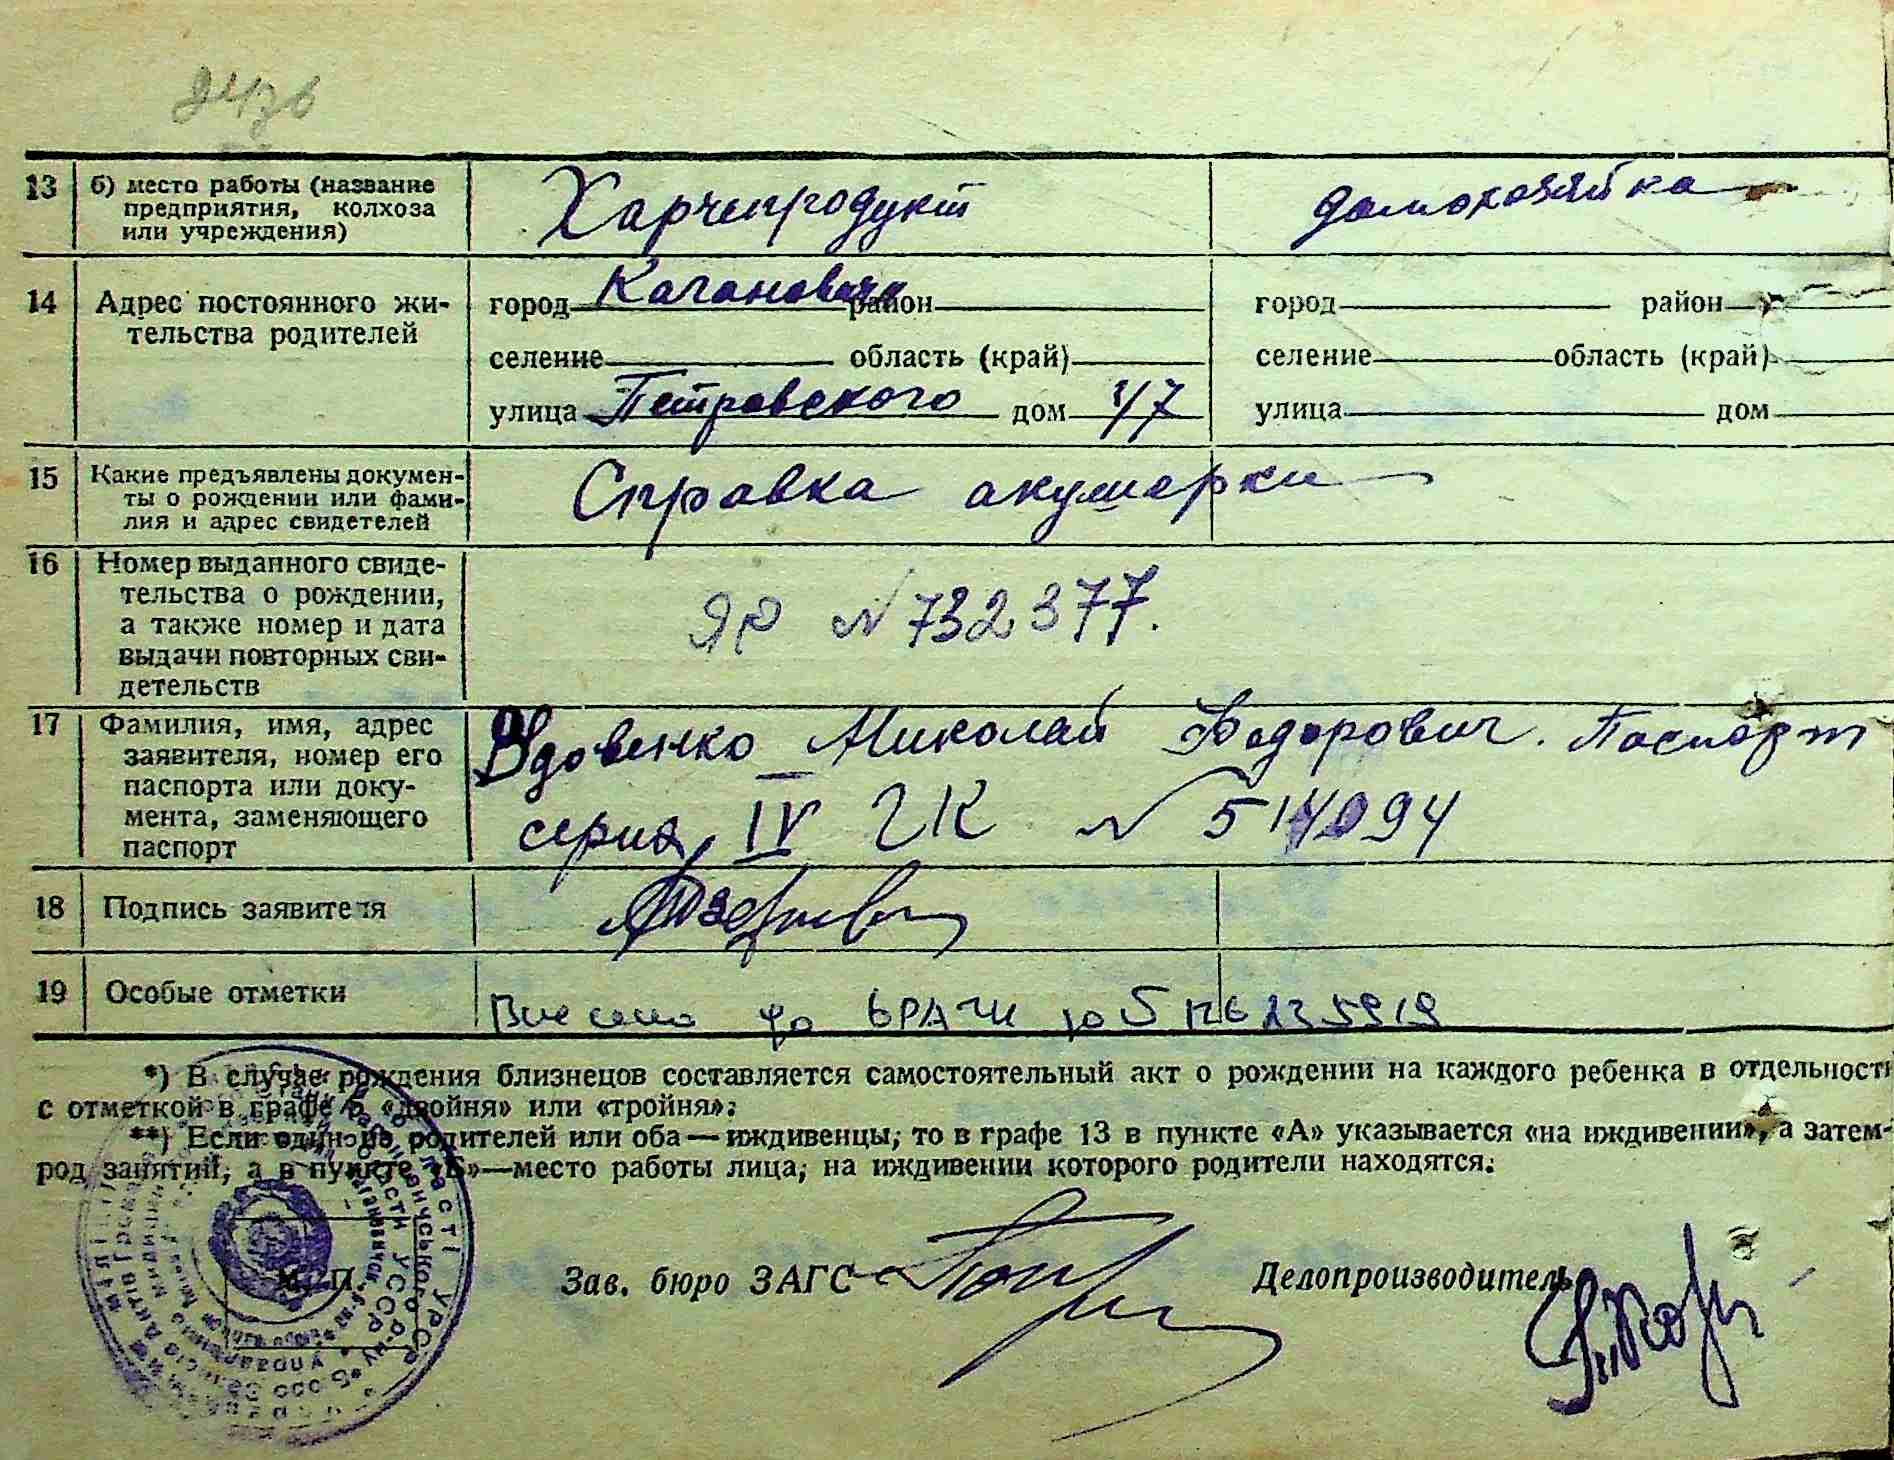 13 б) место работы (название
предприятия, колхоза
или учреждения)
Харчепродукт домохозяйка
14 Адрес постоянного жи-
тельства родителей
город Каганович район город район
селение область (край) селение область (край)
улица Петровского дом 47 улица дом
15 Какие предъявлены докумен-
ты о рождении или фами-
лия и адрес свидетелей
Справка акушерки
16 Номер выданного свиде-
тельства о рождении,
а также номер и дата
выдачи повторных сви-
детельств
ЯР № 732377.
17 Фамилия, имя, адрес
заявителя, номер его
паспорта или доку-
мента, заменяющего
паспорт
Вдовенко Николай Федорович. Паспорт
серия IV ЧК №
18 Подпись заявителя
19 Особые отметки
Внесено до
*) В случае рождения близнецов составляется самостоятельный акт о рождении на каждого ребенка в отдельности
с отметкой в графе 5 «двойня» или «тройня»;
**) Если один из родителей или оба — иждивенцы, то в графе 13 в пункте «А» указывается «на иждивении», а затем-
род занятий, а в пункте «Б»—место работы лица, на иждивении которого родители находятся.
М. П.
Зав. бюро ЗАГС Делопроизводитель